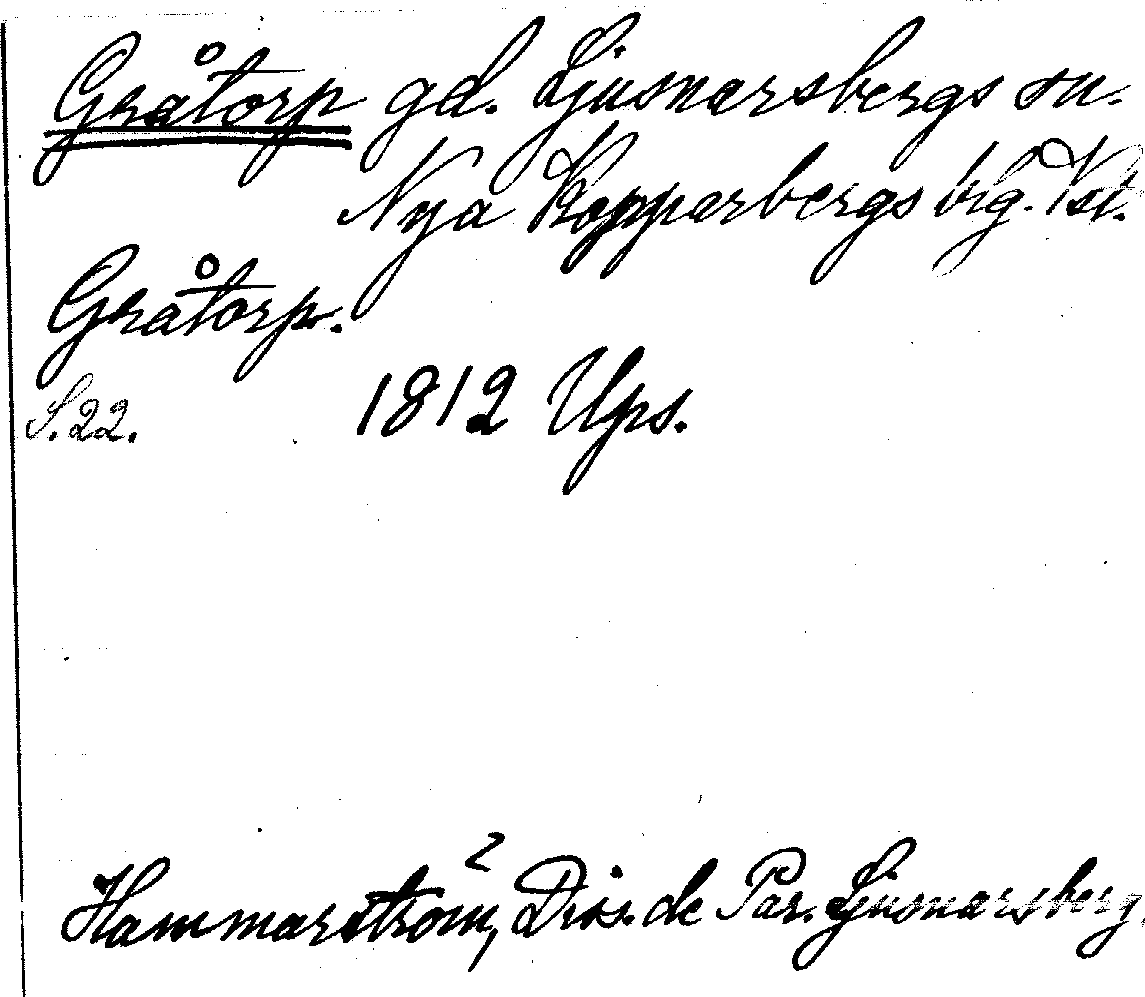 Gråtorp gd. Ljusnarsbergs sn.
Nya Kopparbergs bg. Vst.
Gråtorp.
S. 22. 1812 Ups.
Hammarström, Diss. de Par. Ljusnarsberg.